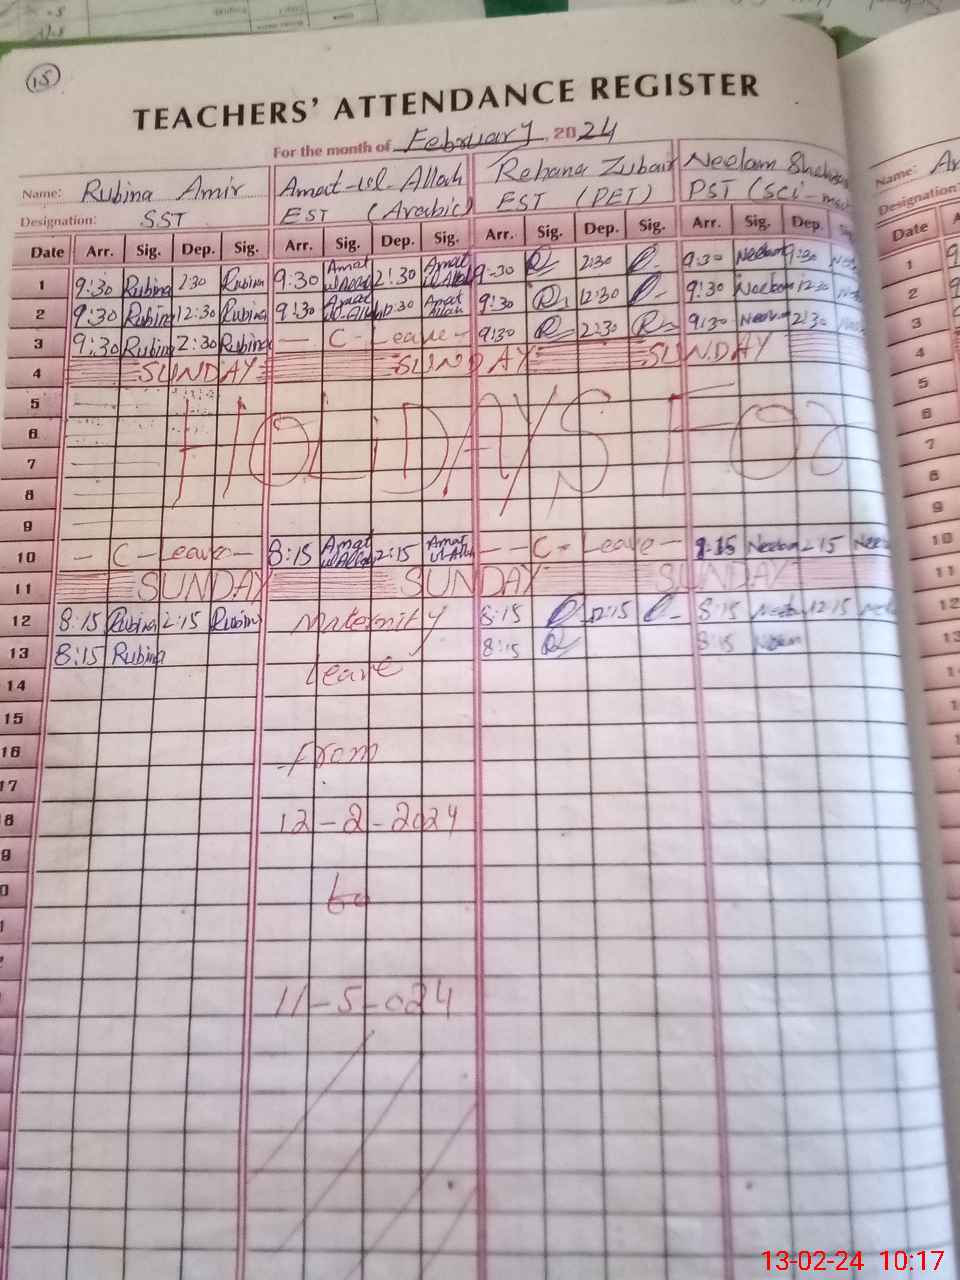 15
TEACHERS' ATTENDANCE REGISTER
For the month of February, 2024
Name: Rubina Amir Amat-ul-Allah Rehana Zubair Neelam
Designation: SST EST (Arabic) EST (PET) PST (Sci-
Date Arr. Sig. Dep. Sig. Arr. Sig. Dep. Sig. Arr. Sig. Dep. Sig. Arr. Sig. Dep.
1 9:30 Rubina 2:30 Rubina 9:30 Amat ul Allah 2:30 Amat ul Allah 9:30 2:30 9:30 Neelam
2 9:30 Rubina 12:30 Rubina 9:30 Amat ul-Allah 12:30 Amat Allah 9:30 12:30 9:30 Neelam 12:30
3 9:30 Rubina 2:30 Rubina - C - Leave - 9:30 2:30 9:30 Neelam 2:30
4 SUNDAY SUNDAY SUNDAY
5
6 HOLIDAYS FOR
7
8
9
10 - C - Leave - 8:15 Amat ul Allah 2:15 Amat ul Allah - - C - Leave - 8:15 Neelam 2:15
11 SUNDAY SUNDAY SUNDAY
12 8:15 Rubina 2:15 Rubina Maternity 8:15 12:15 8:15 Neelam 12:15
13 8:15 Rubina 8:15 8:15 Neelam
14 Leave
15
16 from
17
8 12-2-2024
9
0 to
1
11-5-024
Name:
Designation:
Date
1
2
3
4
5
6
7
8
9
10
11
12
13
13-02-24 10:17